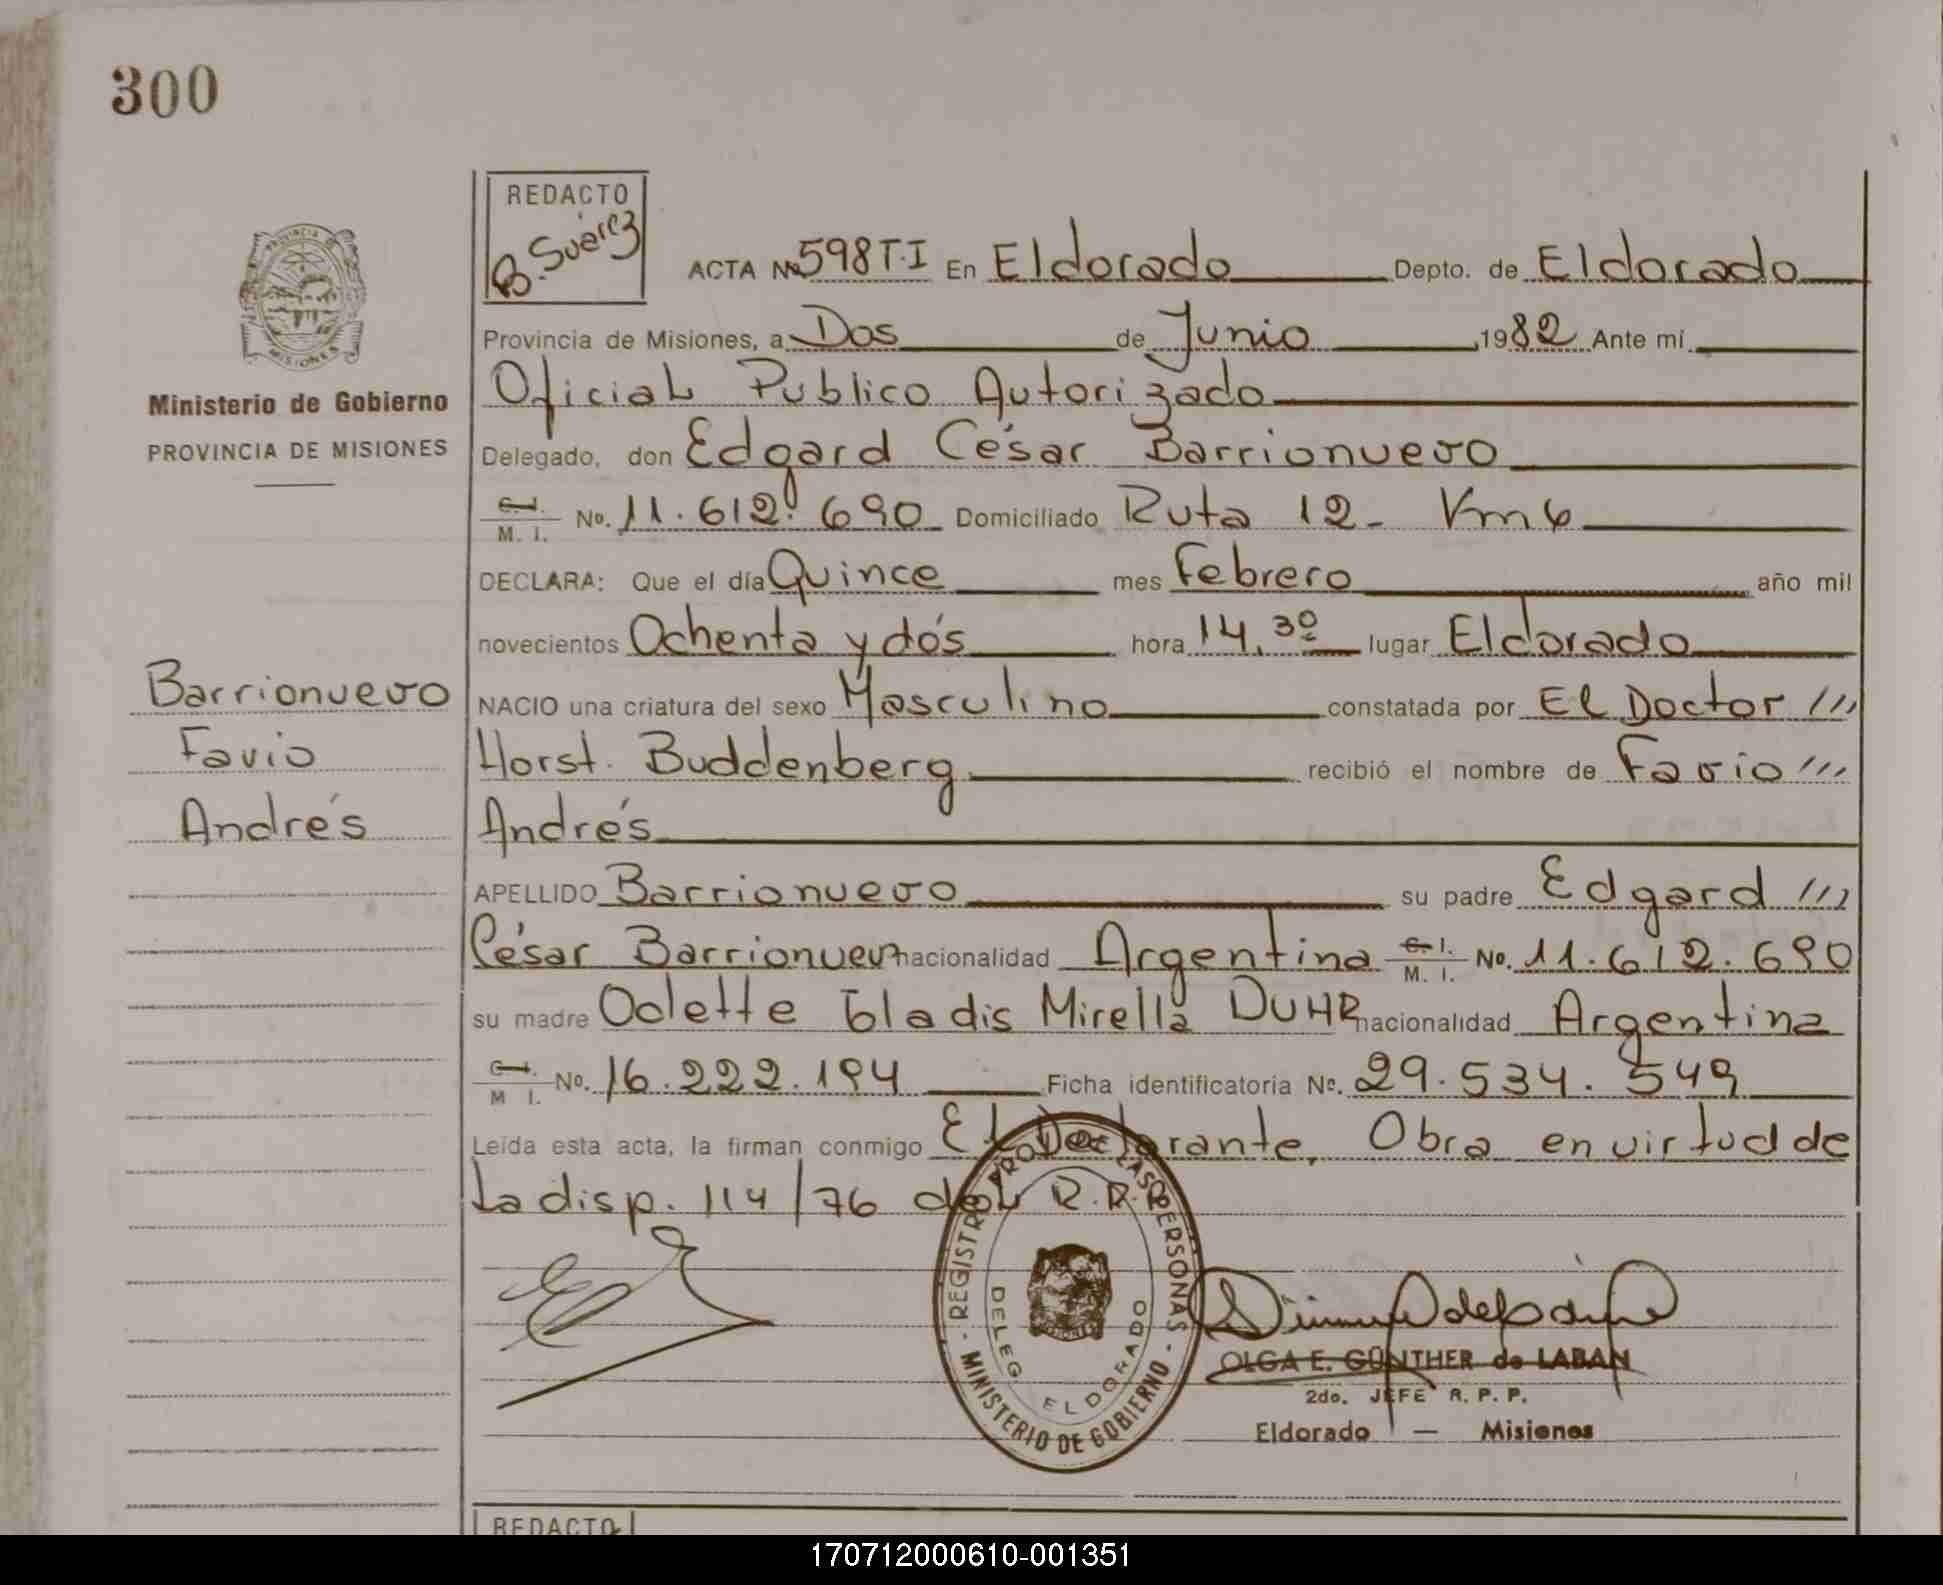 300
REDACTO
B. Suárez
ACTA No 598 T.I En Eldorado Depto. de Eldorado
PROVINCIA DE
MISIONES
Provincia de Misiones, a Dos de Junio 1982 Ante mí
Ministerio de Gobierno
Oficial Publico Autorizado
PROVINCIA DE MISIONES
Delegado, don Edgard César Barrionuevo
C. I.
M. I. No. 11.612.690 Domiciliado Ruta 12- Km 6
DECLARA: Que el día Quince mes Febrero año mil
novecientos Ochenta y dós hora 14.30 lugar Eldorado
Barrionuevo
Favio
Andrés
NACIO una criatura del sexo Masculino constatada por El Doctor ///
Horst. Buddenberg recibió el nombre de Favio ///
Andrés
APELLIDO Barrionuevo su padre Edgard ///
César Barrionuevo nacionalidad Argentina C. I. M. I. No. 11.612.690
su madre Odette Gladis Mirella DUHR nacionalidad Argentina
C. I.
M I. No. 16.222.194 Ficha identificatoria No. 29.534.549
Leída esta acta, la firman conmigo El Declarante, Obra en virtud de
La disp. 114/76 del R.P.P.
REGISTRO PROV. DE LAS PERSONAS
MINISTERIO DE GOBIERNO
DELEG ELDORADO
OLGA E. GÜNTHER de LABAN
2do. JEFE R. P. P.
Eldorado — Misiones
REDACTO
170712000610-001351